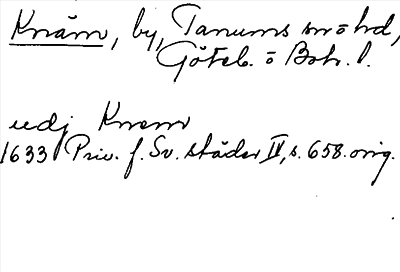 Knäm, by, Tanums sn o hd,
Göteb. o Boh. l.
uedj Knem
1633 Priv. f. Sv. städer II, s. 658. orig.